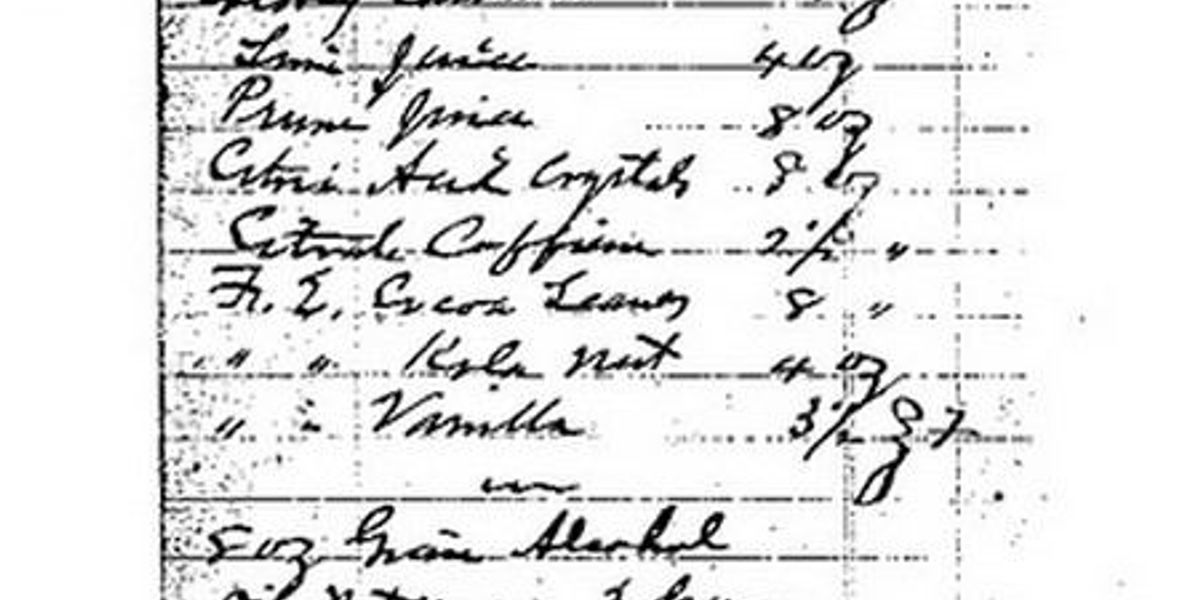 Lime Juice 4 oz
Prune Juice 8 oz
Citric Acid Crystals 8 oz
Citrate Caffeine 2 1/2 "
F. E. Cocoa Leaves 8 "
" " Kola Nut 4 oz
" " Vanilla 3 1/2
8 oz Grain Alcohol